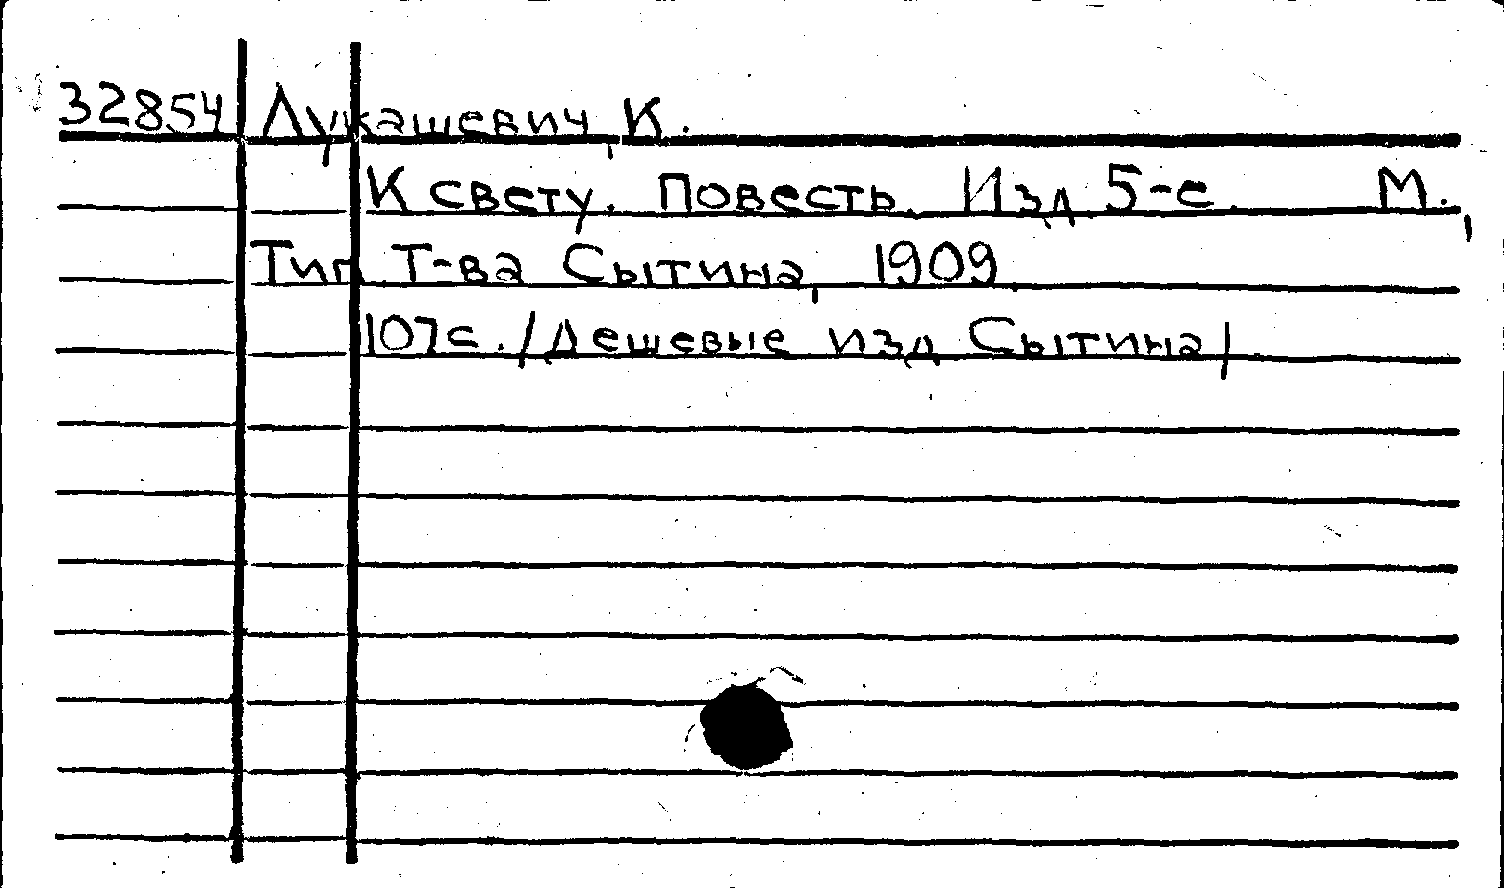 32854 Лукашевич, К.
К свету. Повесть. Изд 5-е. М.,
Тип Т-ва Сытина, 1909.
107с. /Дешевые изд Сытина/